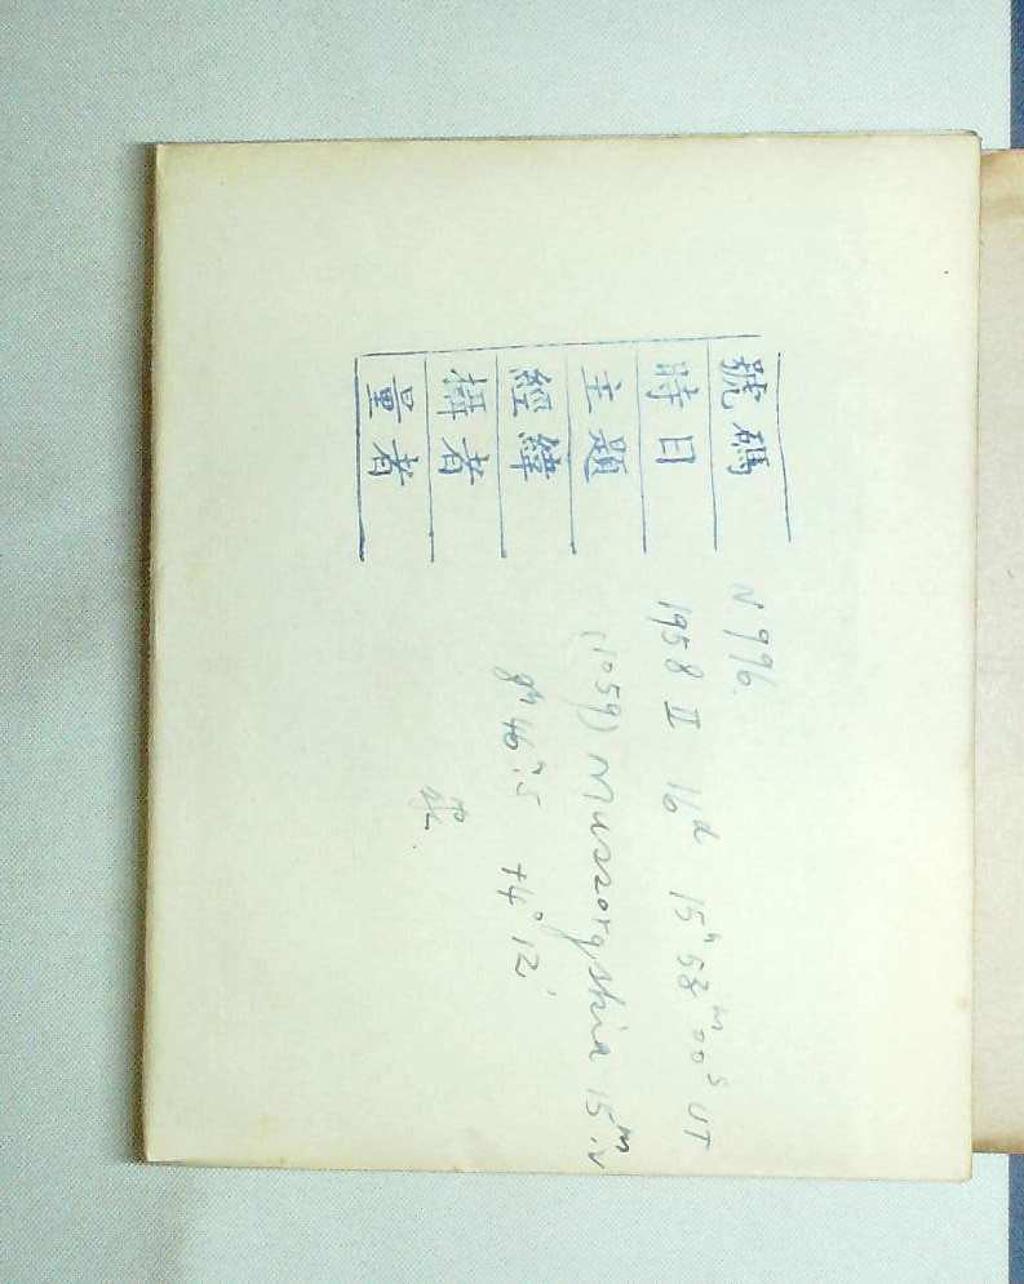 號碼 N 996
時日 1958 II 16ᵈ 15ʰ 53ᵐ 00ˢ UT
主題 (1059) Mussorgskia 15ᵐ.
經緯 9ʰ 46ᵐ.5 +4° 12'
攝者 張
量者